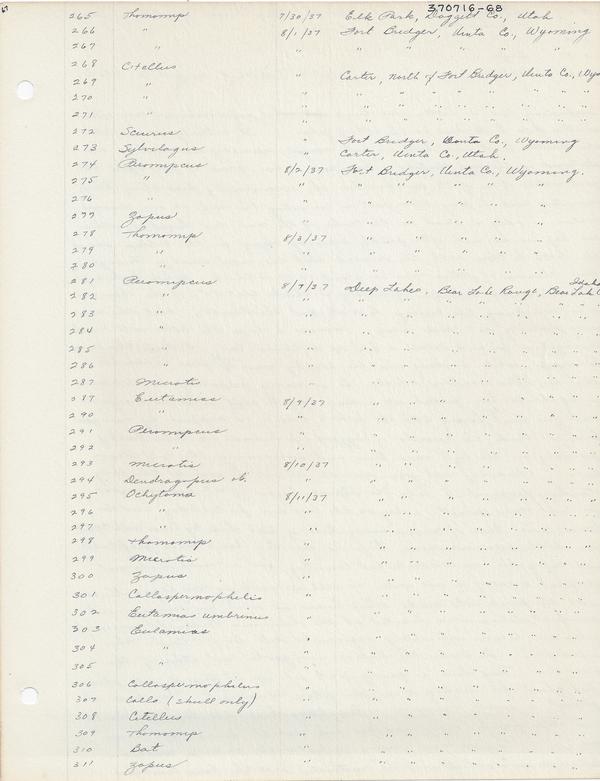 67
370716-68
265 Thomomys 7/30/37 Elk Park, Daggett Co., Utah
266 " 8/1/37 Fort Bridger, Uinta Co., Wyoming
267 " " " " " " "
268 Citellus
269 " " Carter, North of Fort Bridger, Uinta Co., Wyo
270 " " " " " " " "
271 " " " " " " " "
272 Sciurus " Fort Bridger, Uinta Co., Wyoming
273 Sylvilagus " Carter, Uinta Co., Utah.
274 Peromipcus 8/2/37 Fort Bridger, Uinta Co., Wyoming.
275 " " " " " " "
276 " " " " " " "
277 Zapus " " " " " "
278 Thomomys 8/3/37 " " " " "
279 " " " " " " "
280 " " " " " " "
281 Peromipcus 8/7/37 Deep Lake, Bear Lake Range, Bear Lake Idaho
282 " " " " " " " " "
283 " " " " " " " " "
284 " " " " " " " " "
285 " " " " " " " " "
286 " " " " " " " " "
287 Microtis " " " " " " " "
287 Eutamias 8/9/37 " " " " " " "
290 " " " " " " " " "
291 Peromipcus " " " " " " " "
292 " " " " " " " " "
293 Microtis 8/10/37 " " " " " " "
294 Dendragopus ob. " " " " " " " "
295 Ochytoma 8/11/37 " " " " " " "
296 " " " " " " " " "
297 " " " " " " " " "
298 Thomomys " " " " " " " "
299 Microtis " " " " " " " "
300 Zapus " " " " " " " "
301 Callospermophilis " " " " " " " "
302 Eutamias umbrinus " " " " " " " "
303 Eutamias " " " " " " " "
304 " " " " " " " " "
305 " " " " " " " " "
306 Callospermophilus " " " " " " " "
307 Callo (skull only) " " " " " " " "
308 Citellus " " " " " " " "
309 Thomomys " " " " " " " "
310 Bat " " " " " " " "
311 Zapus " " " " " " " "